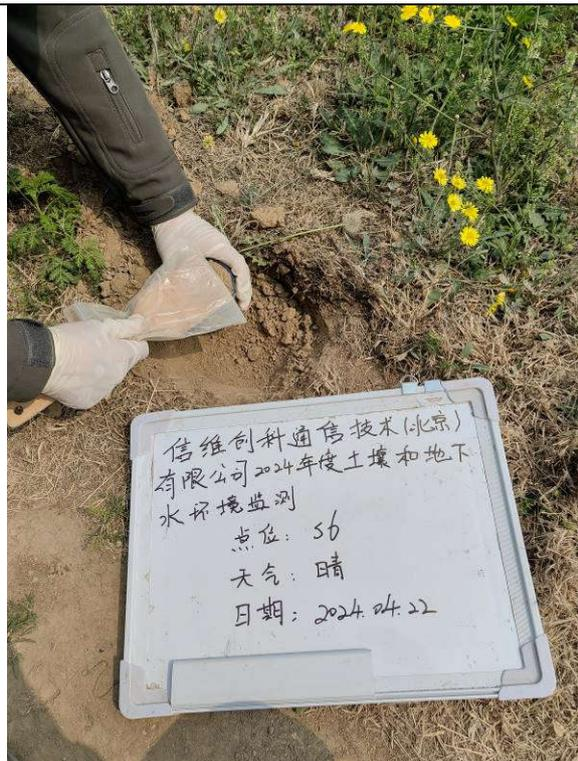 信维创科通信技术(北京)
有限公司2024年度土壤和地下
水环境监测
点位: S6
天气: 晴
日期: 2024.04.22